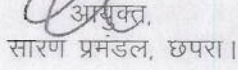 आयुक्त,
सारण प्रमंडल, छपरा।